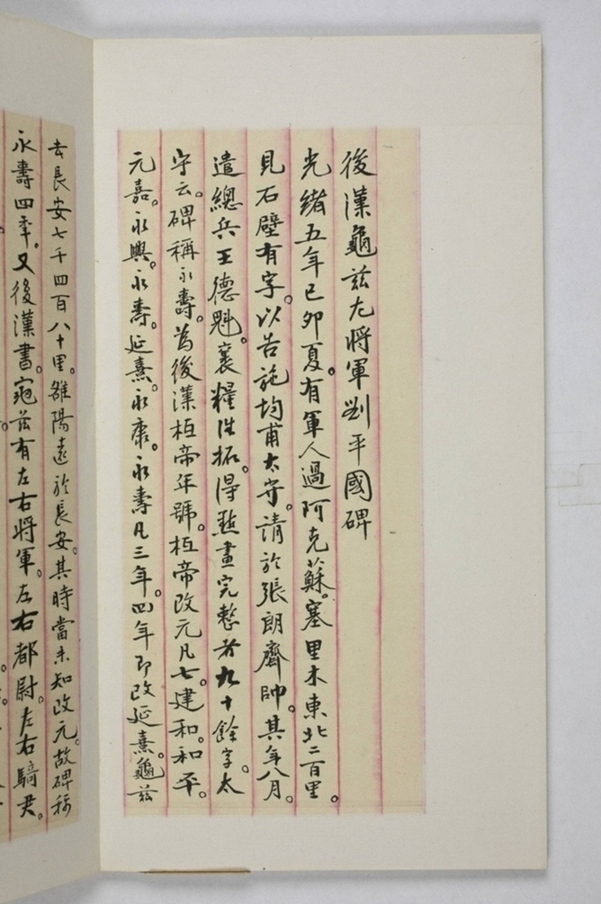 後漢龜茲左將軍劉平國碑
光緒五年己卯夏。有軍人過阿克蘇。塞里木東北二百里。
見石壁有字。以告施均甫太守。請於張朗齋帥。其年八月。
遣總兵王德魁。裹糧往拓。得點畫完整者九十餘字。太
守云。碑稱永壽。為後漢桓帝年號。桓帝改元凡七。建和。和平。
元嘉。永興。永壽。延熹。永康。永壽凡三年。四年即改延熹。龜茲
去長安七千四百八十里。雒陽遠於長安。其時當未知改元。故碑稱
永壽四年。又後漢書。龜茲有左右將軍。左右都尉。左右騎君。